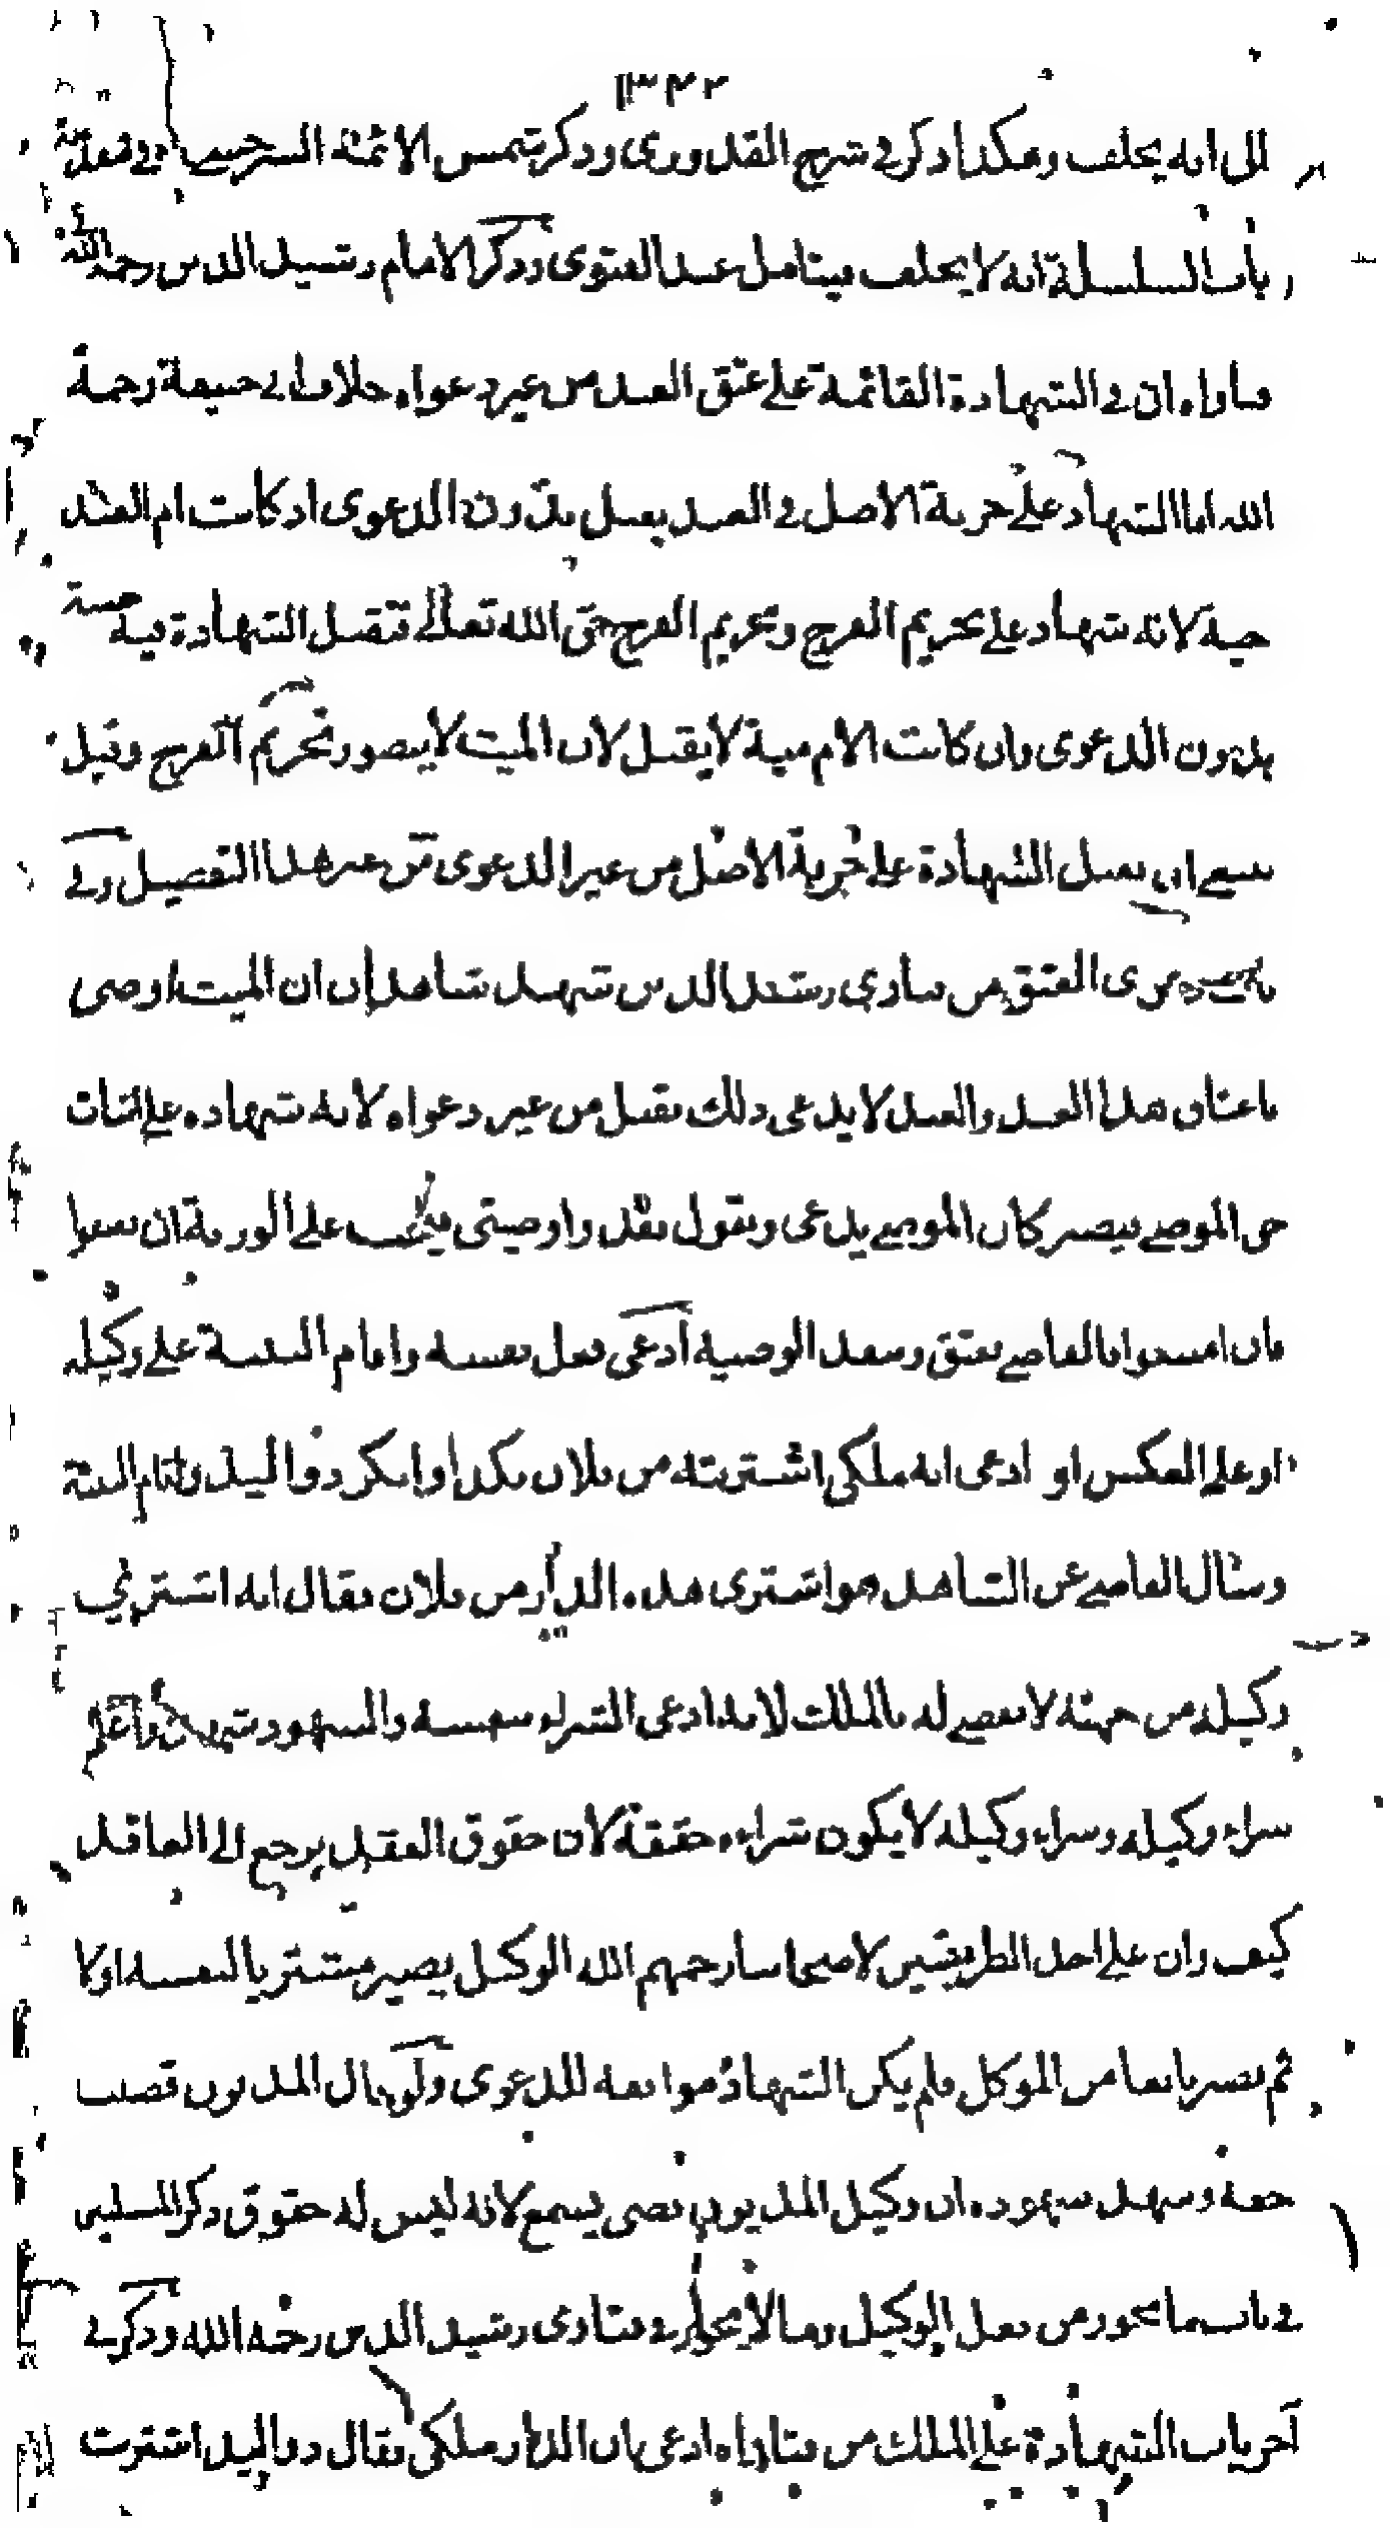 ١٣٤٢
الى انه يحلف وهكذا ذكر في شرح القدورى وذكر شمس الائمة السرخسى في مقدمة
باب السلسلة انه لا يحلف فيتامل عند الفتوى وذكر الامام رشيد الدين رحمه الله في
فتاواه ان في الشهادة القائمة على عتق العبد من غير دعواه خلاف ابى حنيفة رحمة
الله اما الشهادة على حرية الاصل في العبد يقبل بدون الدعوى اذ كانت ام العبد
حية لانه شهاد على تحريم الفرج وتحريم الفرج حق الله تعالى فتقبل الشهادة فيه حسبة
بدون الدعوى وان كانت الام ميتة لا يقبل لان الميت لا يتصور تحريم الفرج وقيل
ينبغى ان يقبل الشهادة على حرية الاصل من غير الدعوى من غير هذا التفصيل وفي
دعوى العتق من فتاوى رشيد الدين شهد شاهدان ان الميت اوصى
باعتاق هذا العبد والعبد لا يدعى ذلك تقبل من غير دعواه لانه شهاده على اثبات
حق الموصى فيصير كان الموصى يدعى ويقول نفذوا وصيتى فيجب على الورثة ان يعتقوا
فان امتنعوا فالقاضى يعتق وينفذ الوصية ادعى فعل نفسه واقام البينة على وكيله
او على العكس او ادعى انه ملكى اشتريته من فلان بكذا وانكر ذو اليد واقام البينة
وسئال القاضى عن الشاهد هو اشترى هذه الدار من فلان فقال انه اشترى
وكيله من جهته لا يقضى له بالملك لانه ادعى الشراء بنفسه والشهود شهدوا على
شراء وكيله وشراء وكيله لا يكون شراءه حقيقة لان حقوق العقد يرجع الى العاقد
كيف وان على احد الطريقين لاصحابنا رحمهم الله الوكيل يصير مشتريا لنفسه اولا
ثم يصير بايعا من الموكل فلم يكن الشهادة موافقة للدعوى ولو قال المديون قضيت
حقه وشهد شهوده ان وكيل المديون قضى يسمع لانه ليس له حقوق ذكر المسلبن
في باب ما يجوز من فعل الوكيل وما لا يجوز في فتاوى رشيد الدين رحمه الله وذكر في
آخر باب الشهادة على الملك من فتاواه ادعى بان الدار ملكى فقال ذو اليد اشتريت